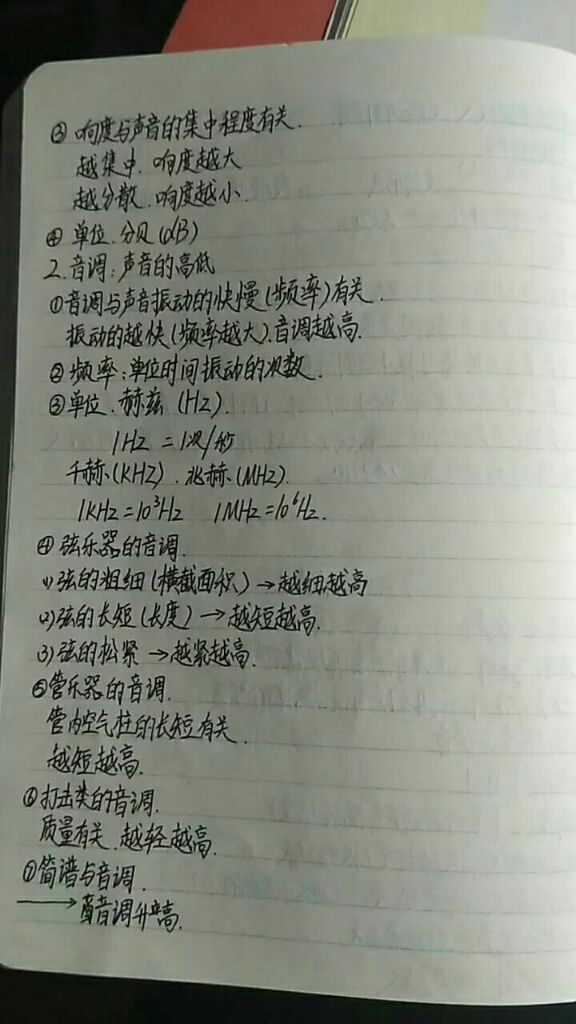 ③响度与声音的集中程度有关.
越集中.响度越大
越分散.响度越小.
④单位.分贝(dB)
2.音调:声音的高低
①音调与声音振动的快慢(频率)有关.
振动的越快(频率越大).音调越高.
②频率:单位时间振动的次数.
③单位.赫兹(Hz)
1Hz=1次/秒
千赫(KHZ).兆赫(MHz).
1kHz=10³Hz 1MHz=10⁶Hz.
④弦乐器的音调.
(1)弦的粗细(横截面积)→越细越高
(2)弦的长短(长度)→越短越高.
(3)弦的松紧→越紧越高.
⑤管乐器的音调.
管内空气柱的长短有关.
越短越高.
⑥打击类的音调.
质量有关.越轻越高.
⑦简谱与音调.
→音调升高.